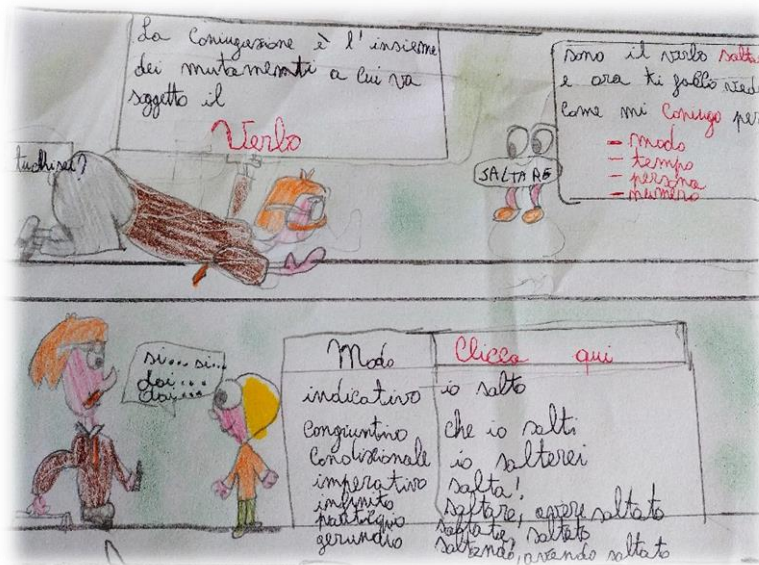 La Coniugazione è l'insieme
dei mutamenti a cui va
soggetto il
Verbo
tu chi sei?
SALTARE
sono il verbo salta
e ora ti faccio vede
come mi coniugo per
- modo
- tempo
- persona
- numero
si... si...
dai...
dai...
Modo Clicca qui
indicativo io salto
congiuntivo che io salti
Condizionale io salterei
imperativo salta!
infinito saltare, avere saltato
participio saltato
gerundio saltando, avendo saltato